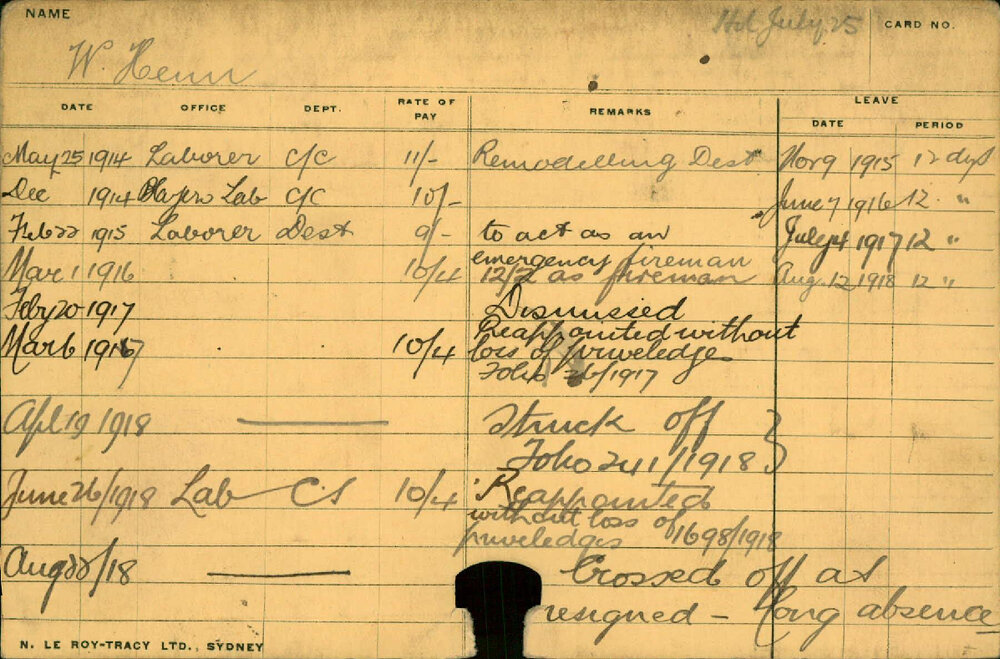 NAME
Htd July. 25
CARD NO.
W. Henn
DATE OFFICE DEPT. RATE OF PAY REMARKS LEAVE
DATE PERIOD
May 25 1914 Laborer C/C 11/- Remodelling Dest Nov 9 1915 12 dys
Dec 1914 Lab C/C 10/- June 7 1916 12 "
Feb 22 1915 Laborer Dest 9/- to act as an July 4 1917 12 "
emergency fireman
Mar 1 1916 10/4 12/2 as fireman Aug. 12 1918 12 "
Feby 20 1917 Dismissed
Mar 6 1917 10/4 Reappointed without
loss of priveledge
Folio 26/1917
Apl 19 1918 Struck off
Folio 241/1918
June 26/1918 Lab CS 10/4 Reappointed
without loss of
priveledges 1698/1918
Aug 22/18 Crossed off as
resigned - Long absence
N. LE ROY-TRACY LTD., SYDNEY